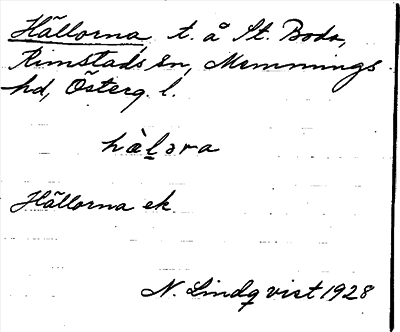 Hällorna t. å St. Boda,
Rimstads sn, Memmings
hd, Österg. l.
hàḷəra
Hällorna ek
N. Lindqvist 1928